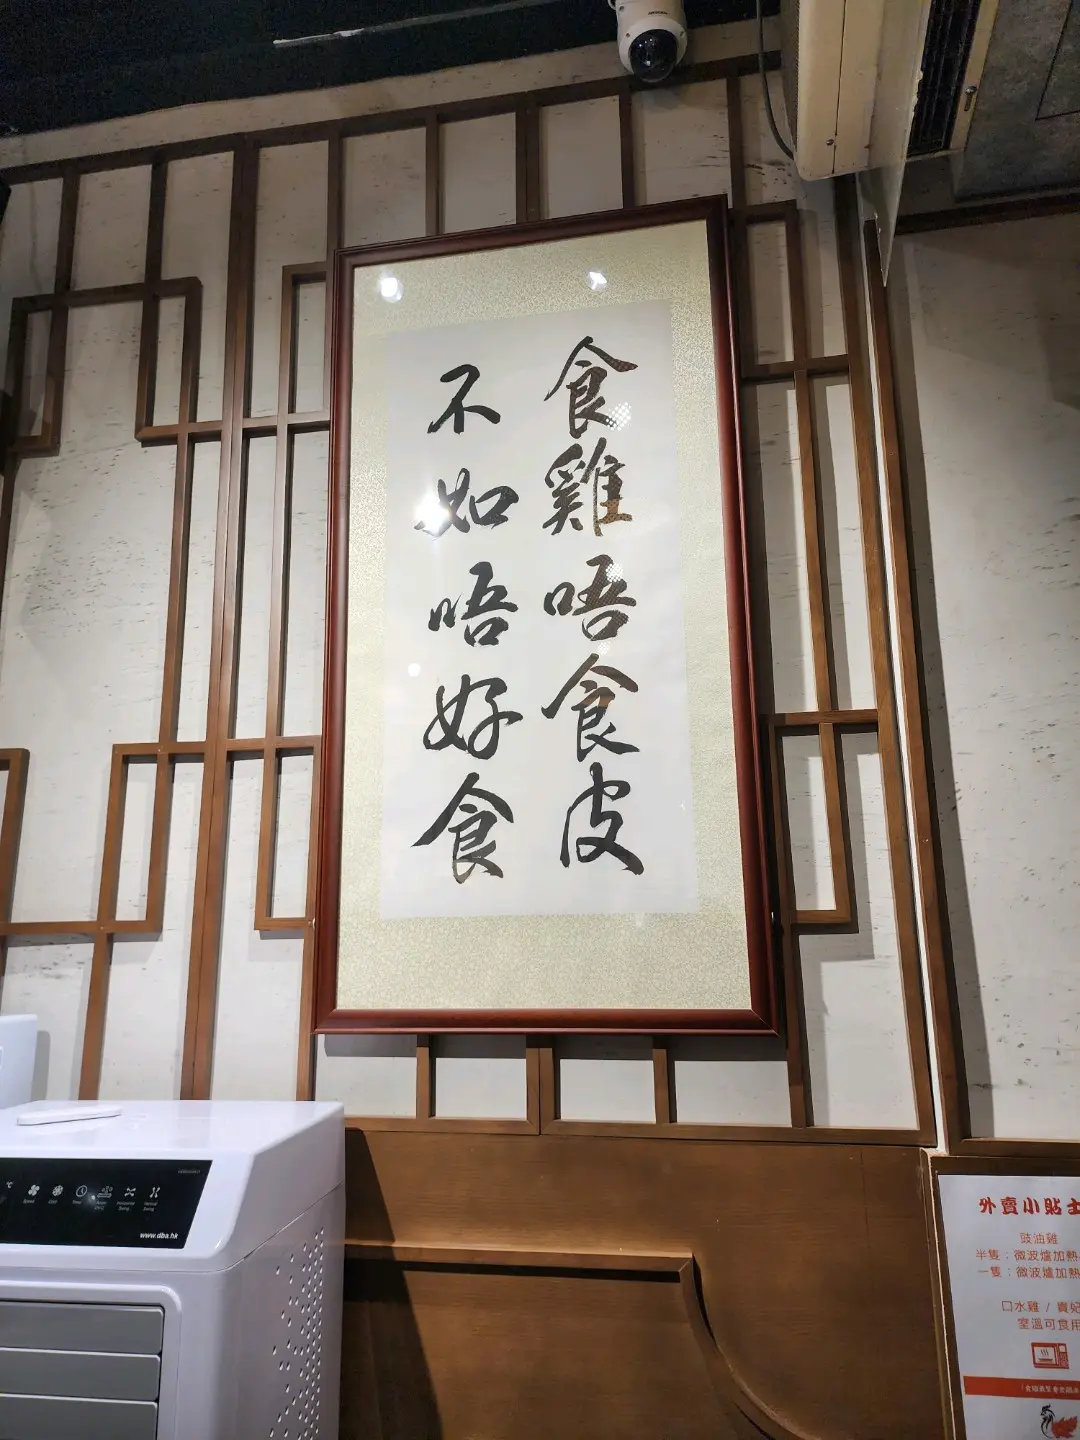 食雞唔食皮
不如唔好食
www.dba.hk
外賣小貼士
豉油雞
半隻：微波爐加熱
一隻：微波爐加熱
口水雞 / 貴妃
室溫可食用